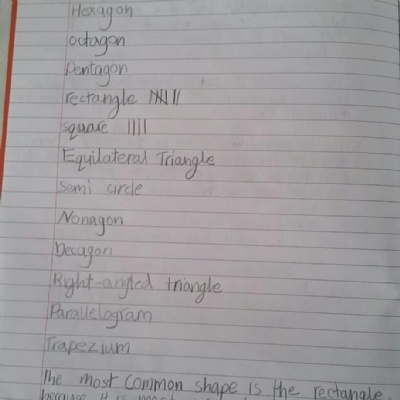 Hexagon
octagon
Pentagon
rectangle
square ||||
Equilateral Triangle
Semi circle
Nonagon
Decagon
Right-angled triangle
Parallelogram
Trapezium
The most common shape is the rectangle.
because it is most